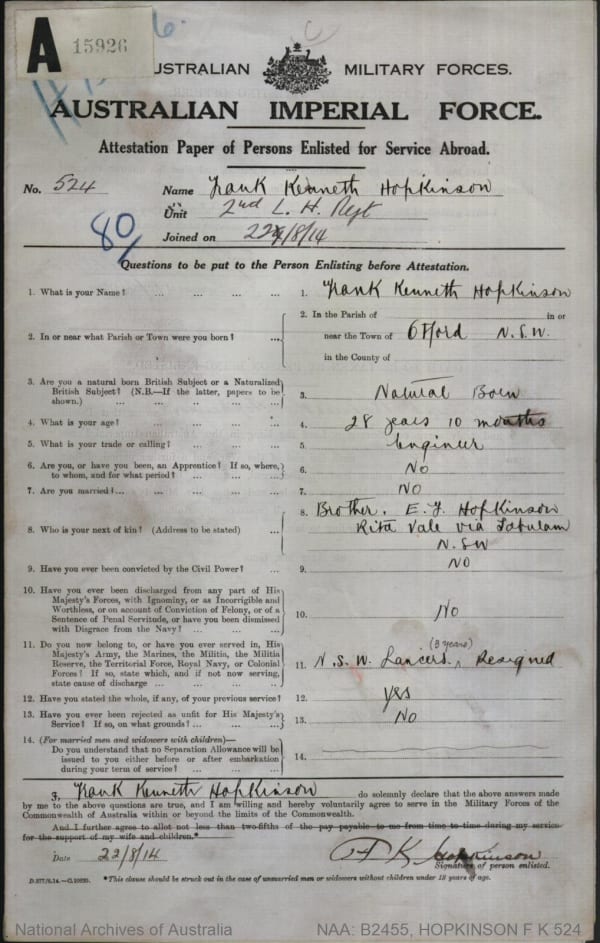 A 15926
AUSTRALIAN MILITARY FORCES.
AUSTRALIAN IMPERIAL FORCE.
Attestation Paper of Persons Enlisted for Service Abroad.
No. 524 Name Frank Kenneth Hopkinson
Unit 2nd L. H. Regt
Joined on 22/8/14
80/
Questions to be put to the Person Enlisting before Attestation.
1. What is your Name? ... ... ... 1. Frank Kenneth Hopkinson
2. In or near what Parish or Town were you born? ... 2. In the Parish of in or
near the Town of Otford N.S.W.
in the County of
3. Are you a natural born British Subject or a Naturalized
British Subject? (N.B.—If the latter, papers to be
shown.) ... ... ... ... 3. Natural Born
4. What is your age? ... ... ... 4. 28 years 10 months
5. What is your trade or calling? ... ... 5. Engineer
6. Are you, or have you been, an Apprentice? If so, where,
to whom, and for what period? ... ... 6. No
7. Are you married? ... ... ... ... 7. No
8. Who is your next of kin? (Address to be stated) ... 8. Brother. E. J. Hopkinson
Rita Vale via Tabulam
N.SW
9. Have you ever been convicted by the Civil Power? ... 9. No
10. Have you ever been discharged from any part of His
Majesty's Forces, with Ignominy, or as Incorrigible and
Worthless, or on account of Conviction of Felony, or of a
Sentence of Penal Servitude, or have you been dismissed
with Disgrace from the Navy? ... ... ... 10. No
11. Do you now belong to, or have you ever served in, His
Majesty's Army, the Marines, the Militia, the Militia
Reserve, the Territorial Force, Royal Navy, or Colonial
Forces? If so, state which, and if not now serving,
state cause of discharge ... ... ... 11. N.S.W. Lancers. (3 years) Resigned
12. Have you stated the whole, if any, of your previous service? 12. yes
13. Have you ever been rejected as unfit for His Majesty's
Service? If so, on what grounds? ... ... ... 13. No
14. (For married men and widowers with children)—
Do you understand that no Separation Allowance will be
issued to you either before or after embarkation
during your term of service? ... ... 14.
I, Frank Kenneth Hopkinson do solemnly declare that the above answers made
by me to the above questions are true, and I am willing and hereby voluntarily agree to serve in the Military Forces of the
Commonwealth of Australia within or beyond the limits of the Commonwealth.
And I further agree to allot not less than two-fifths of the pay payable to me from time to time during my service
for the support of my wife and children.*
Date 22/8/14 F K Hopkinson
Signature of person enlisted.
*This clause should be struck out in the case of unmarried men or widowers without children under 18 years of age.
National Archives of Australia NAA: B2455, HOPKINSON F K 524